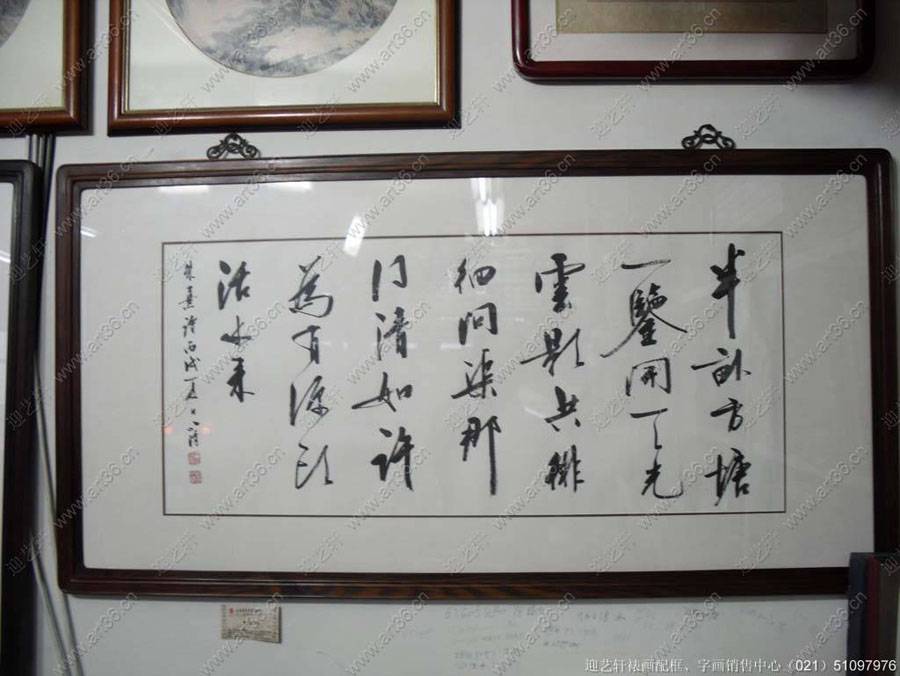 半畝方塘
一鑒開天光
雲影共徘
徊問渠那
得清如許
為有源頭
活水来
朱熹詩丙戌夏日
迎艺轩 www.art36.cn
迎艺轩裱画配框、字画销售中心（021）51097976